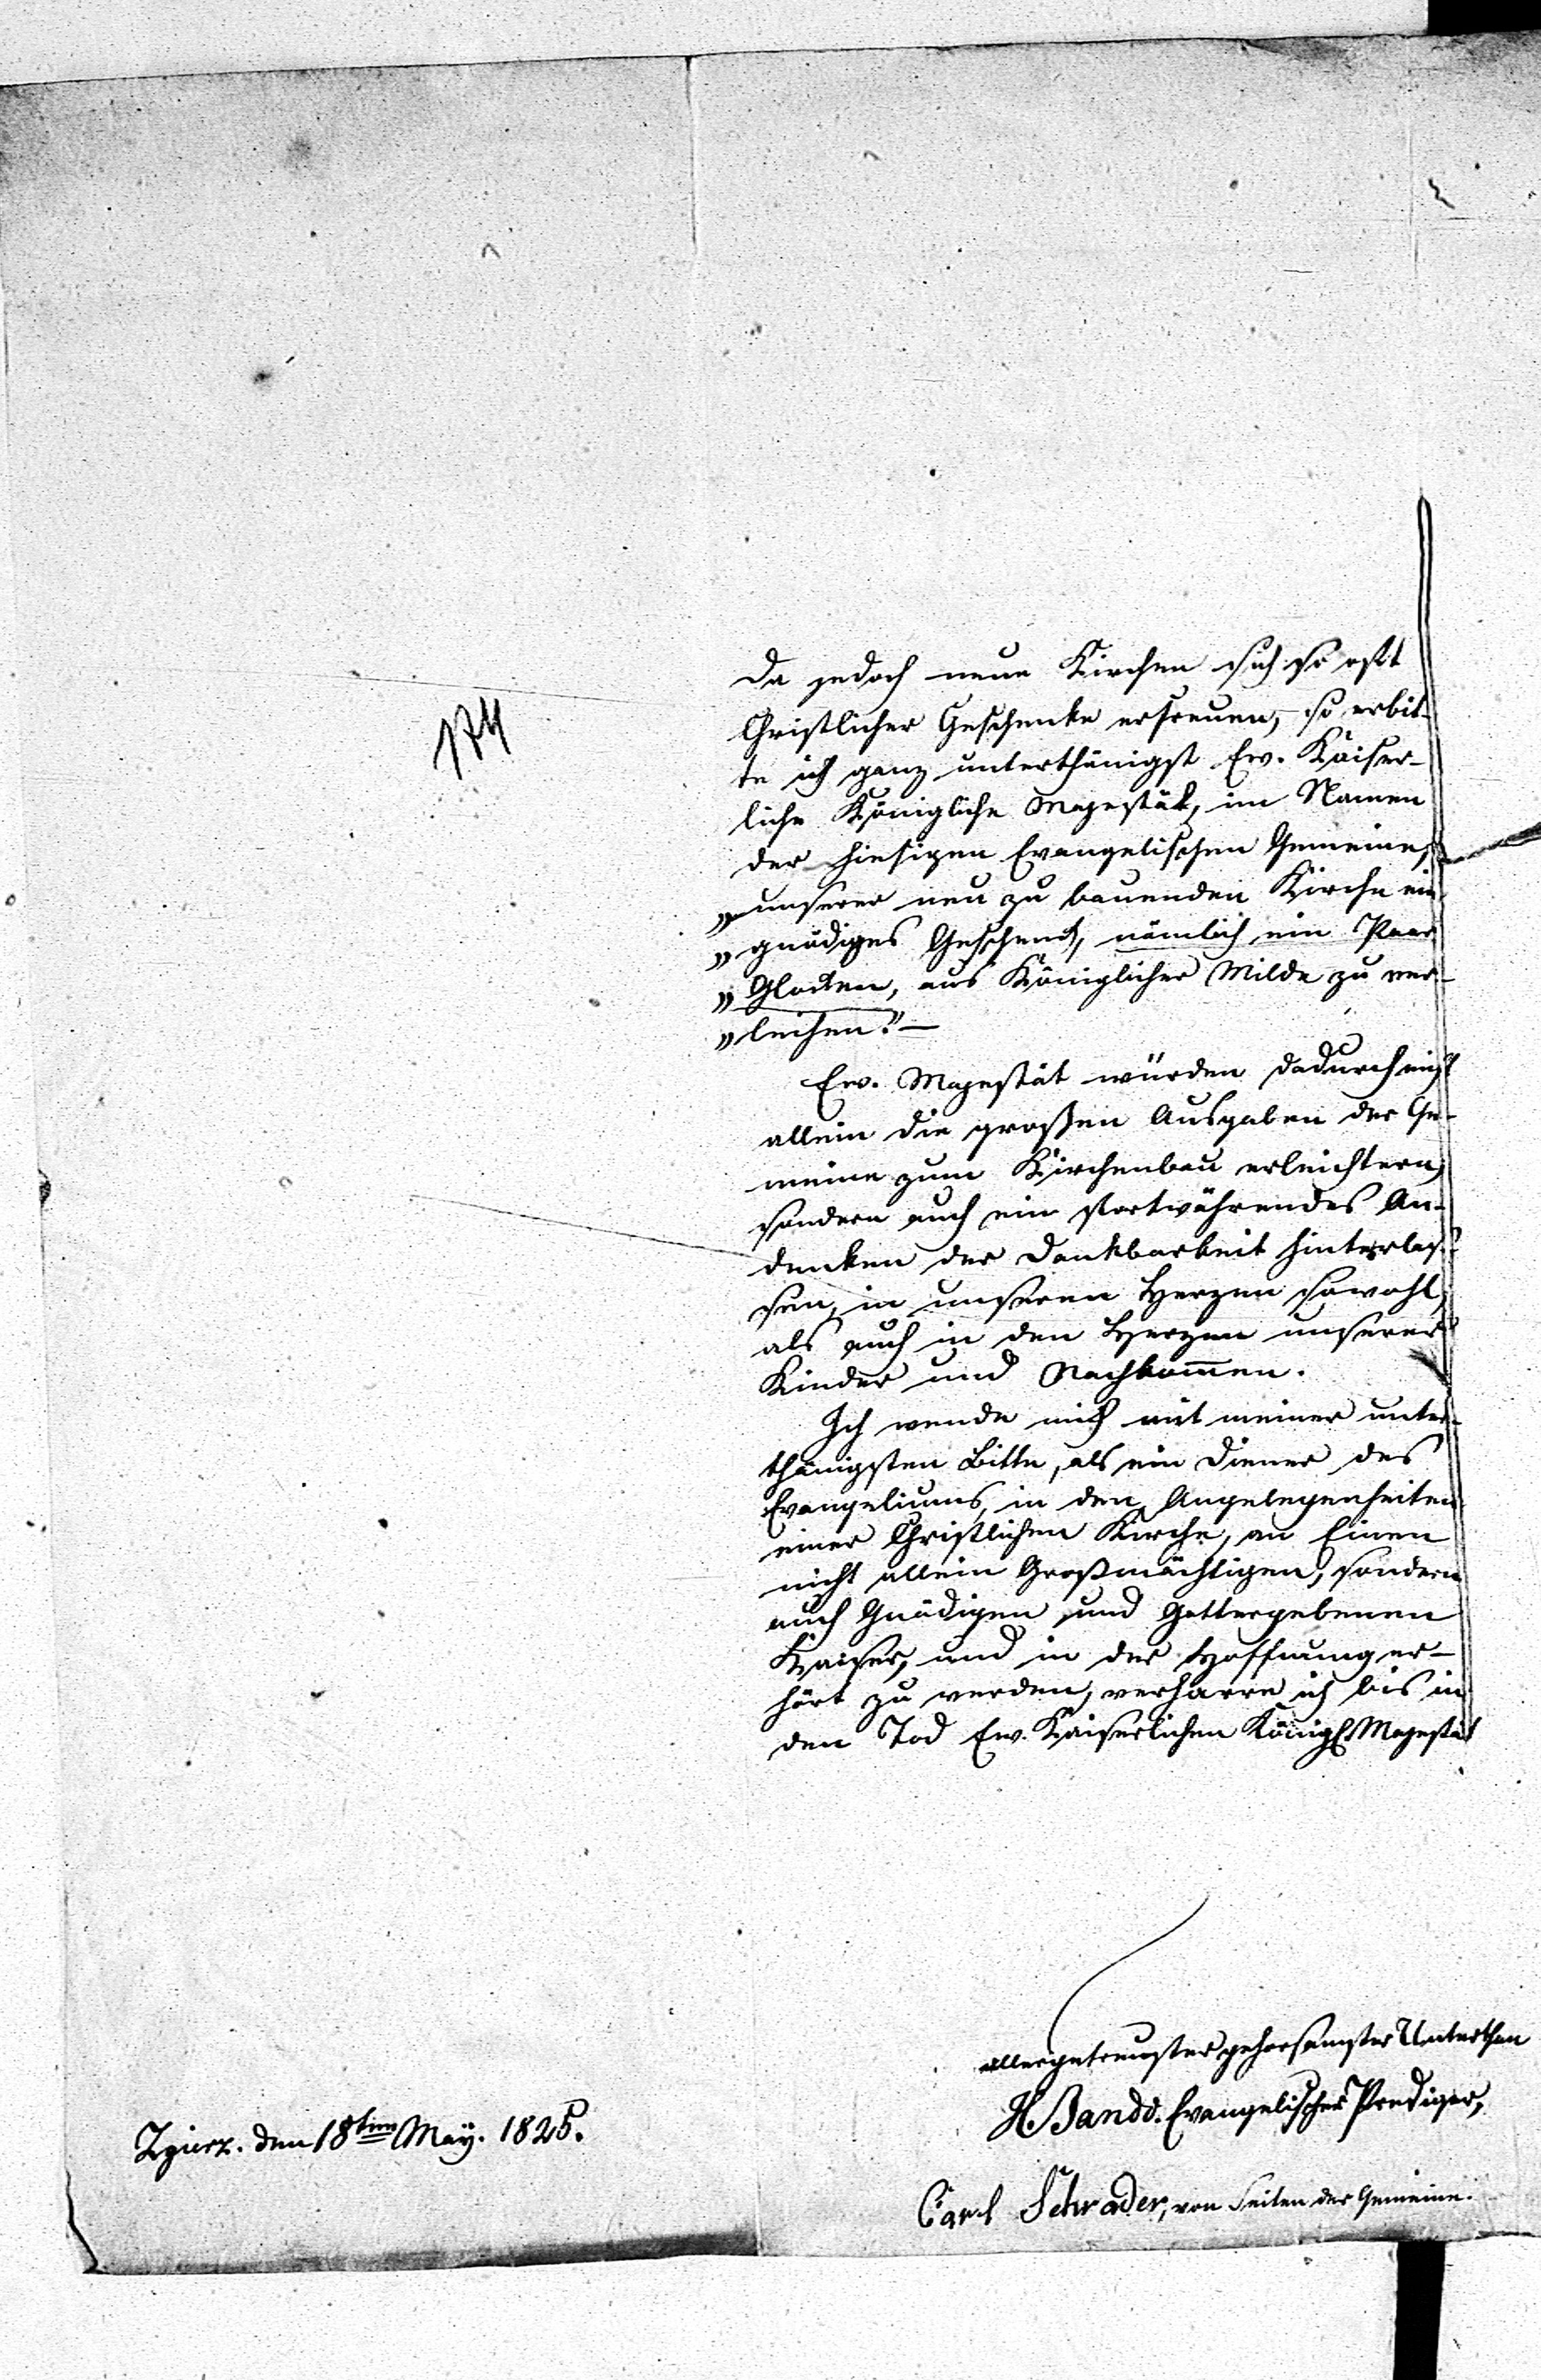 174
Da jedoch neue Kirchen sich so oft
Christlicher Geschenke erfreuen, so erbit-
te ich ganz unterthänigst Ew. Kaiser-
liche Königliche Majestät, im Namen
der hiesigen Evangelischen Gemeine,
„unserer neu zu bauenden Kirche ein
„gnädiges Geschenk, nämlich ein Paar
„Glocken, aus Königlicher Milde zu ver-
„leihen." —
Ew. Majestät würden dadurch nicht
allein die großen Ausgaben der Ge-
meine zum Kirchenbau erleichtern,
sondern auch ein fortwährendes An-
denken der Dankbarkeit hinterlas-
sen, in unseren Herzen sowohl,
als auch in den Herzen unserer
Kinder und Nachkom̅en.
Ich wende mich mit meiner unter-
thänigsten Bitte, als ein Diener des
Evangeliums, in den Angelegenheiten
einer Christlichen Kirche, an Einen
nicht allein Großmächtigen, sondern
auch Gnädigen und Gottergebenen
Kaiser, und in der Hoffnung er-
hört zu werden, verharre ich bis in
den Tod Ew. Kaiserlichen Königl. Majestät
allergetreuster gehorsamster Unterthan
H. Bando. Evangelischer Prediger,
Zgierz. den 18ten May. 1825.
Carl Schrader, von Seiten der Gemeine.